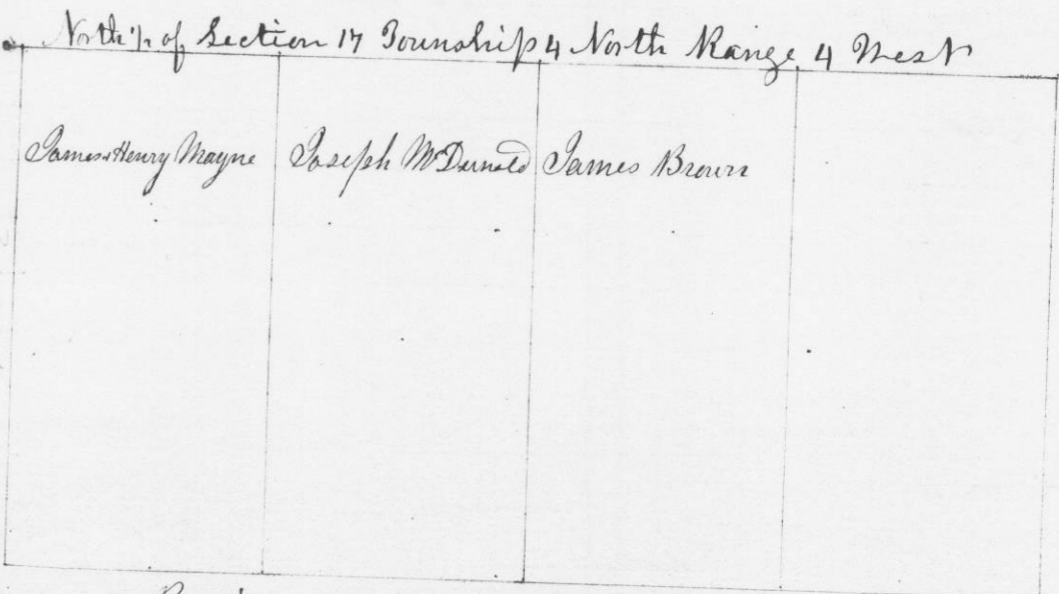 North ½ of Section 17 Township 4 North Range 4 West
James & Henry Mayne Joseph McDurnold James Brown